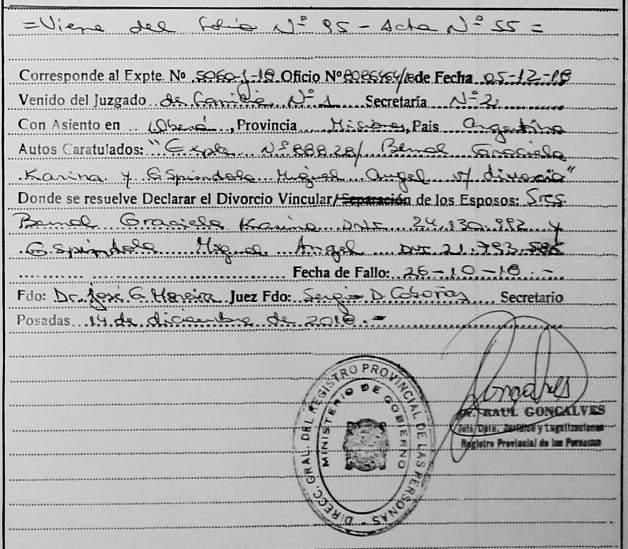 =Viene del Folio Nº 95 - Acta Nº 55 =
Corresponde al Expte. Nº 5060-J-18 Oficio Nº 8086464/ de Fecha 05-12-18
Venido del Juzgado de Familia Nº 1 Secretaría Nº 2
Con Asiento en Oberá, Provincia Misiones, País Argentina
Autos Caratulados: "Expte Nº 88828/ Bernal Graciela
Karina y Espindola Miguel Angel s/ divorcio"
Donde se resuelve Declarar el Divorcio Vincular/Separación de los Esposos: Sres.
Bernal Graciela Karina DNI 24.830.992 y
Espindola Miguel Angel DNI 21.793.586
Fecha de Fallo: 26-10-18.-
Fdo: Dr. José G. Moreira Juez Fdo: Sergio D. Secretario
Posadas 14 de diciembre de 2018.=
DIRECC. GRAL. DEL REGISTRO PROVINCIAL DE LAS PERSONAS
MINISTERIO DE GOBIERNO
Dr. RAUL GONCALVES
Jefe Dpto. Jurídico y Legalizaciones
Registro Provincial de las Personas